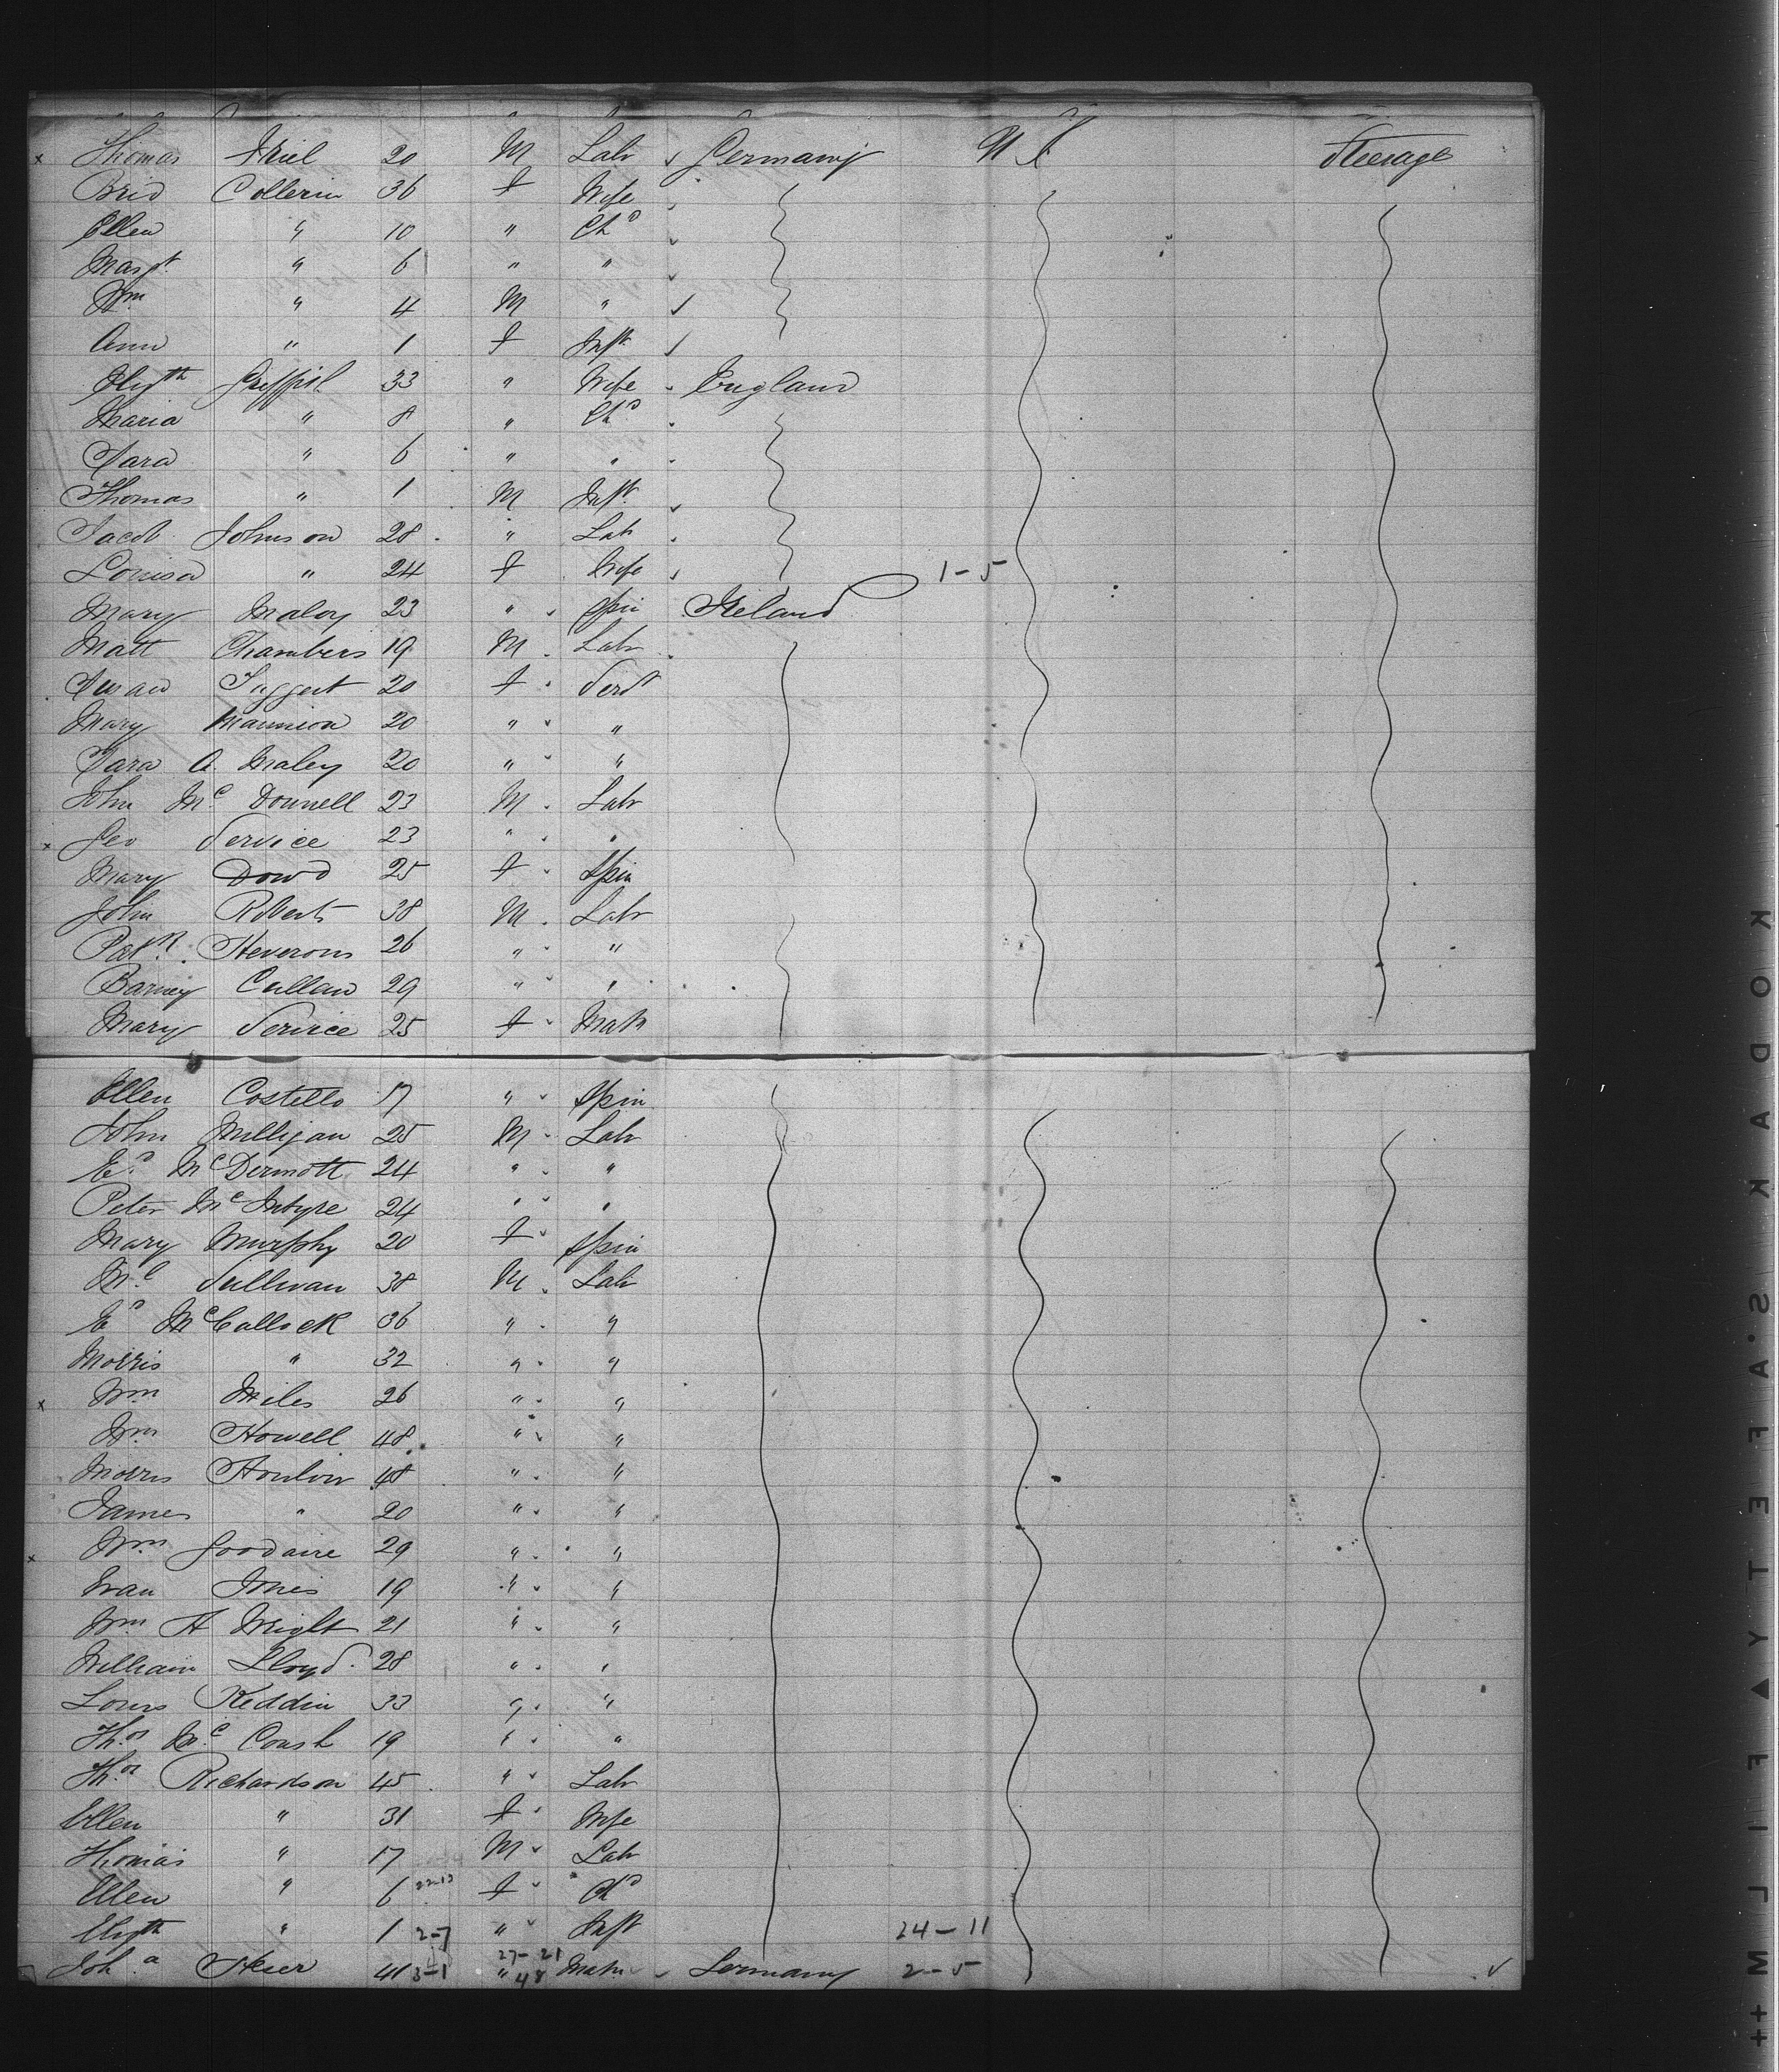 x Thomas Friel 20 M Labr Germany U S Steerage
Brid Collerin 36 F Wife
Ellen " 10 " Chd
Margt " 6 " "
Wm " 4 M "
Ann " 1 F Inft
Elizth 33 " Wife England
Maria " 8 " Chd
Sara " 6 " "
Thomas " 1 M Inft
Jacob Johnson 28 " Labr
Louisa " 24 F Wife 1-5
Mary Maloy 23 " Spin Ireland
Matt Chambers 19 M Labr
Susan Taggert 20 F Servt
Mary Mannion 20 " "
Sara A. Maley 20 " "
John Mc Donnell 23 M Labr
x Geo Service 23 " "
Mary Dowd 25 F Spin
John Roberts 38 M Labr
Patk Heverons 26 " "
Barney Cullan 29 " "
Mary Service 25 F Matn
Ellen Costello 17 " Spin
John Milligan 25 M Labr
Ed McDermott 24 " "
Peter McIntyre 24 " "
Mary Murphy 20 F Spin
Ml Sullivan 38 M Labr
Ed McCullock 36 " "
Morris " 32 " "
x Wm Miles 26 " "
Wm Howell 48 " "
Morris 48 " "
James " 20 " "
x Wm Goodaire 29 " "
Evan Jones 19 " "
Wm H Wright 21 " "
William Lloyd 28 " "
Louis Keddin 33 " "
Thos Mc Coush 19 " "
Thos Richardson 45 " Labr
Ellen " 31 F Wife
Thomas " 17 M Labr
Ellen " 6 22-13 F Chd
Elizth " 1 2-7 " Inft 24-11
Joha 41 3-1 27-21 " 48 Matn Germany 2-5
KODAK SAFETY ▲ FILM ++